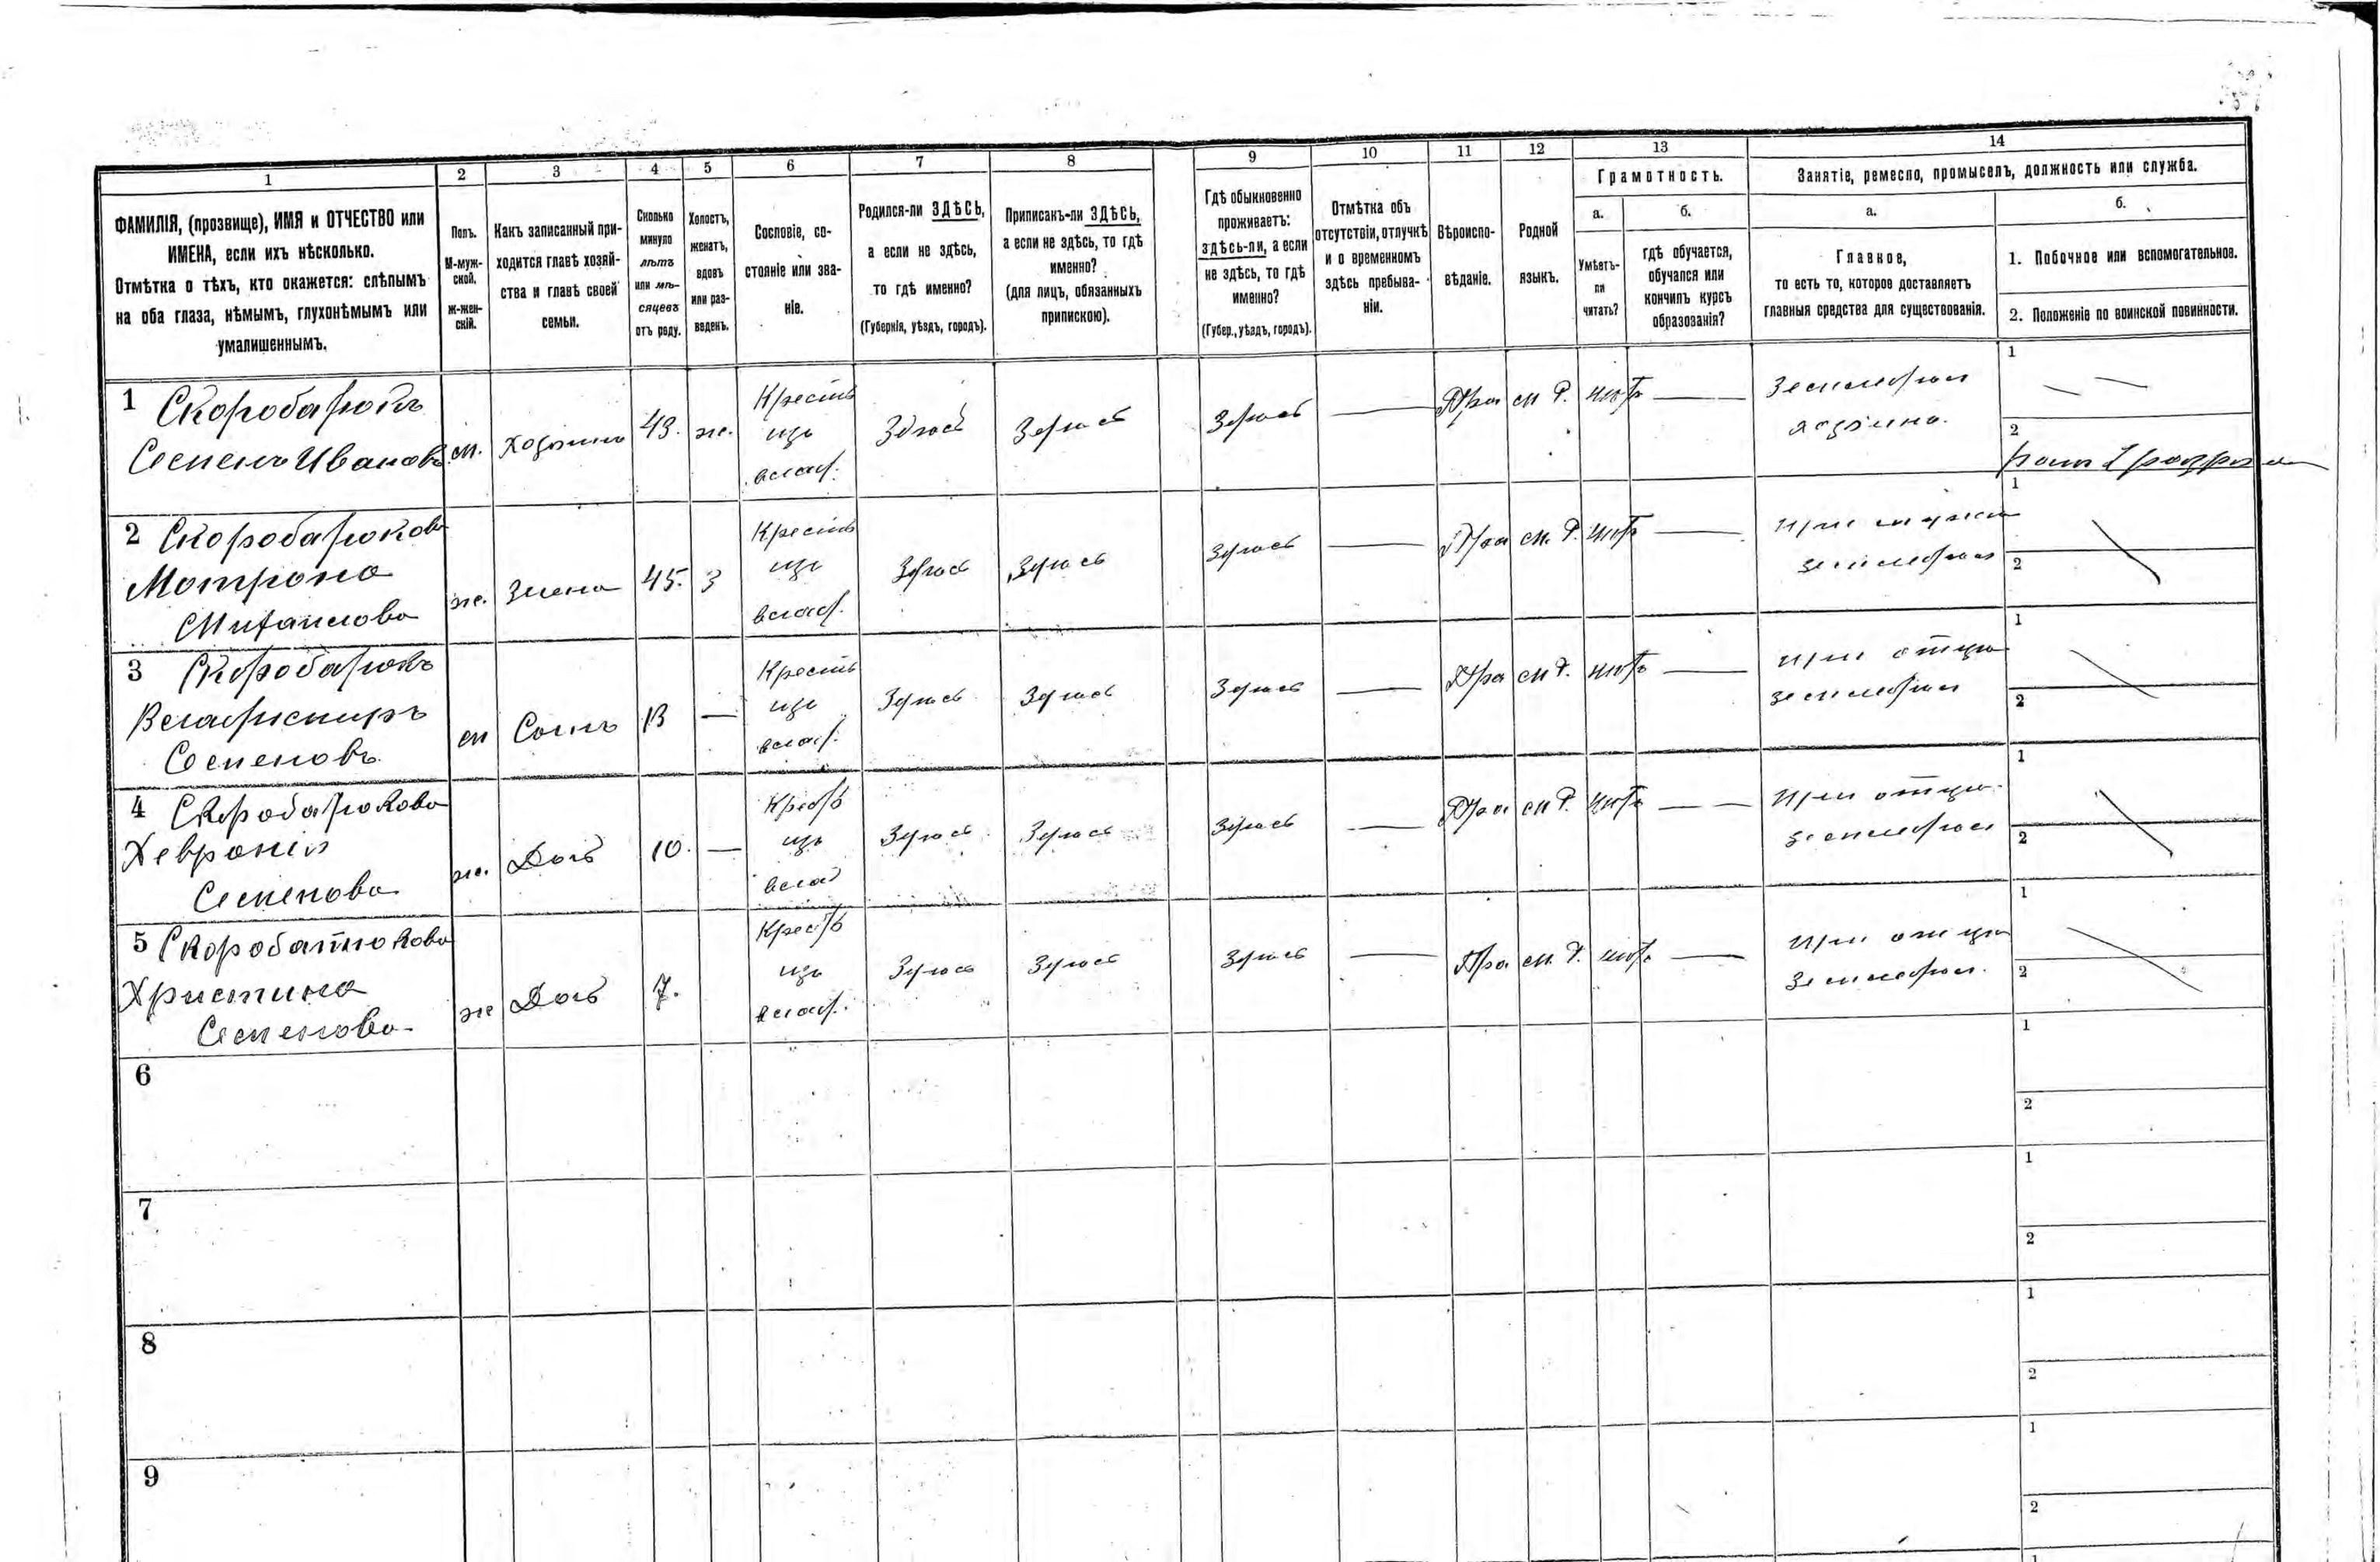 1
2
3
4
5
6
7
8
9
10
11
12
13
14
ФАМИЛІЯ, (прозвище), ИМЯ и ОТЧЕСТВО или
ИМЕНА, если ихъ нѣсколько.
Отмѣтка о тѣхъ, кто окажется: слѣпымъ
на оба глаза, нѣмымъ, глухонѣмымъ или
умалишеннымъ.
Полъ.
М-муж-
ской.
Ж-жен-
скій.
Какъ записанный при-
ходится главѣ хозяй-
ства и главѣ своей
семьи.
Сколько
минуло
лѣтъ
или мѣ-
сяцевъ
отъ роду.
Холостъ,
женатъ,
вдовъ
или раз-
веденъ.
Сословіе, со-
стояніе или зва-
ніе.
Родился-ли ЗДѢСЬ,
а если не здѣсь,
то гдѣ именно?
(Губернія, уѣздъ, городъ).
Приписанъ-ли ЗДѢСЬ,
а если не здѣсь, то гдѣ
именно?
(для лицъ, обязанныхъ
припискою).
Гдѣ обыкновенно
проживаетъ:
здѣсь-ли, а если
не здѣсь, то гдѣ
именно?
(Губер., уѣздъ, городъ).
Отмѣтка объ
отсутствіи, отлучкѣ
и о временномъ
здѣсь пребыва-
ніи.
Вѣроиспо-
вѣданіе.
Родной
языкъ.
Грамотность.
а.
Умѣетъ-
ли
читать?
б.
гдѣ обучается,
обучался или
кончилъ курсъ
образованія?
Занятіе, ремесло, промыселъ, должность или служба.
а.
Главное,
то есть то, которое доставляетъ
главныя средства для существованія.
б.
1. Побочное или вспомогательное.
2. Положеніе по воинской повинности.
1 Скоробагюкъ
Семенъ Ивановъ
м.
хозяинъ
43.
ж.
Кресть
изъ
влад.
Здѣсь
Здѣсь
Здѣсь
—
Пра
м. Р.
нѣтъ
—
Земледѣл
хозяинъ.
1
2
2 Скоробагюкова
Матрона
Михаилова
ж.
Жена
45.
З
Кресть
изъ
влад.
Здѣсь
Здѣсь
Здѣсь
—
Пра
м. Р.
нѣтъ
—
при мужѣ
земледѣл
1
2
3 Скоробагюкъ
Владимиръ
Семеновъ
м
Сынъ
13
—
Кресть
изъ
влад.
Здѣсь
Здѣсь
Здѣсь
—
Пра
м Р.
нѣтъ
—
при отцѣ
земледѣл
1
2
4 Скоробагюкова
Хевронія
Семенова
ж.
Дочь
10.
—
Кресть
изъ
влад
Здѣсь
Здѣсь
Здѣсь
—
Пра
м Р.
нѣтъ
—
при отцѣ.
земледѣл
1
2
5 Скоробатюкова
Христина
Семенова
ж
Дочь
7.
Кресть
изъ
влад.
Здѣсь
Здѣсь
Здѣсь
—
Пра
м. Р.
нѣтъ
—
при отцѣ
Земледѣл.
1
2
6
1
2
7
1
2
8
1
2
9
1
2
1